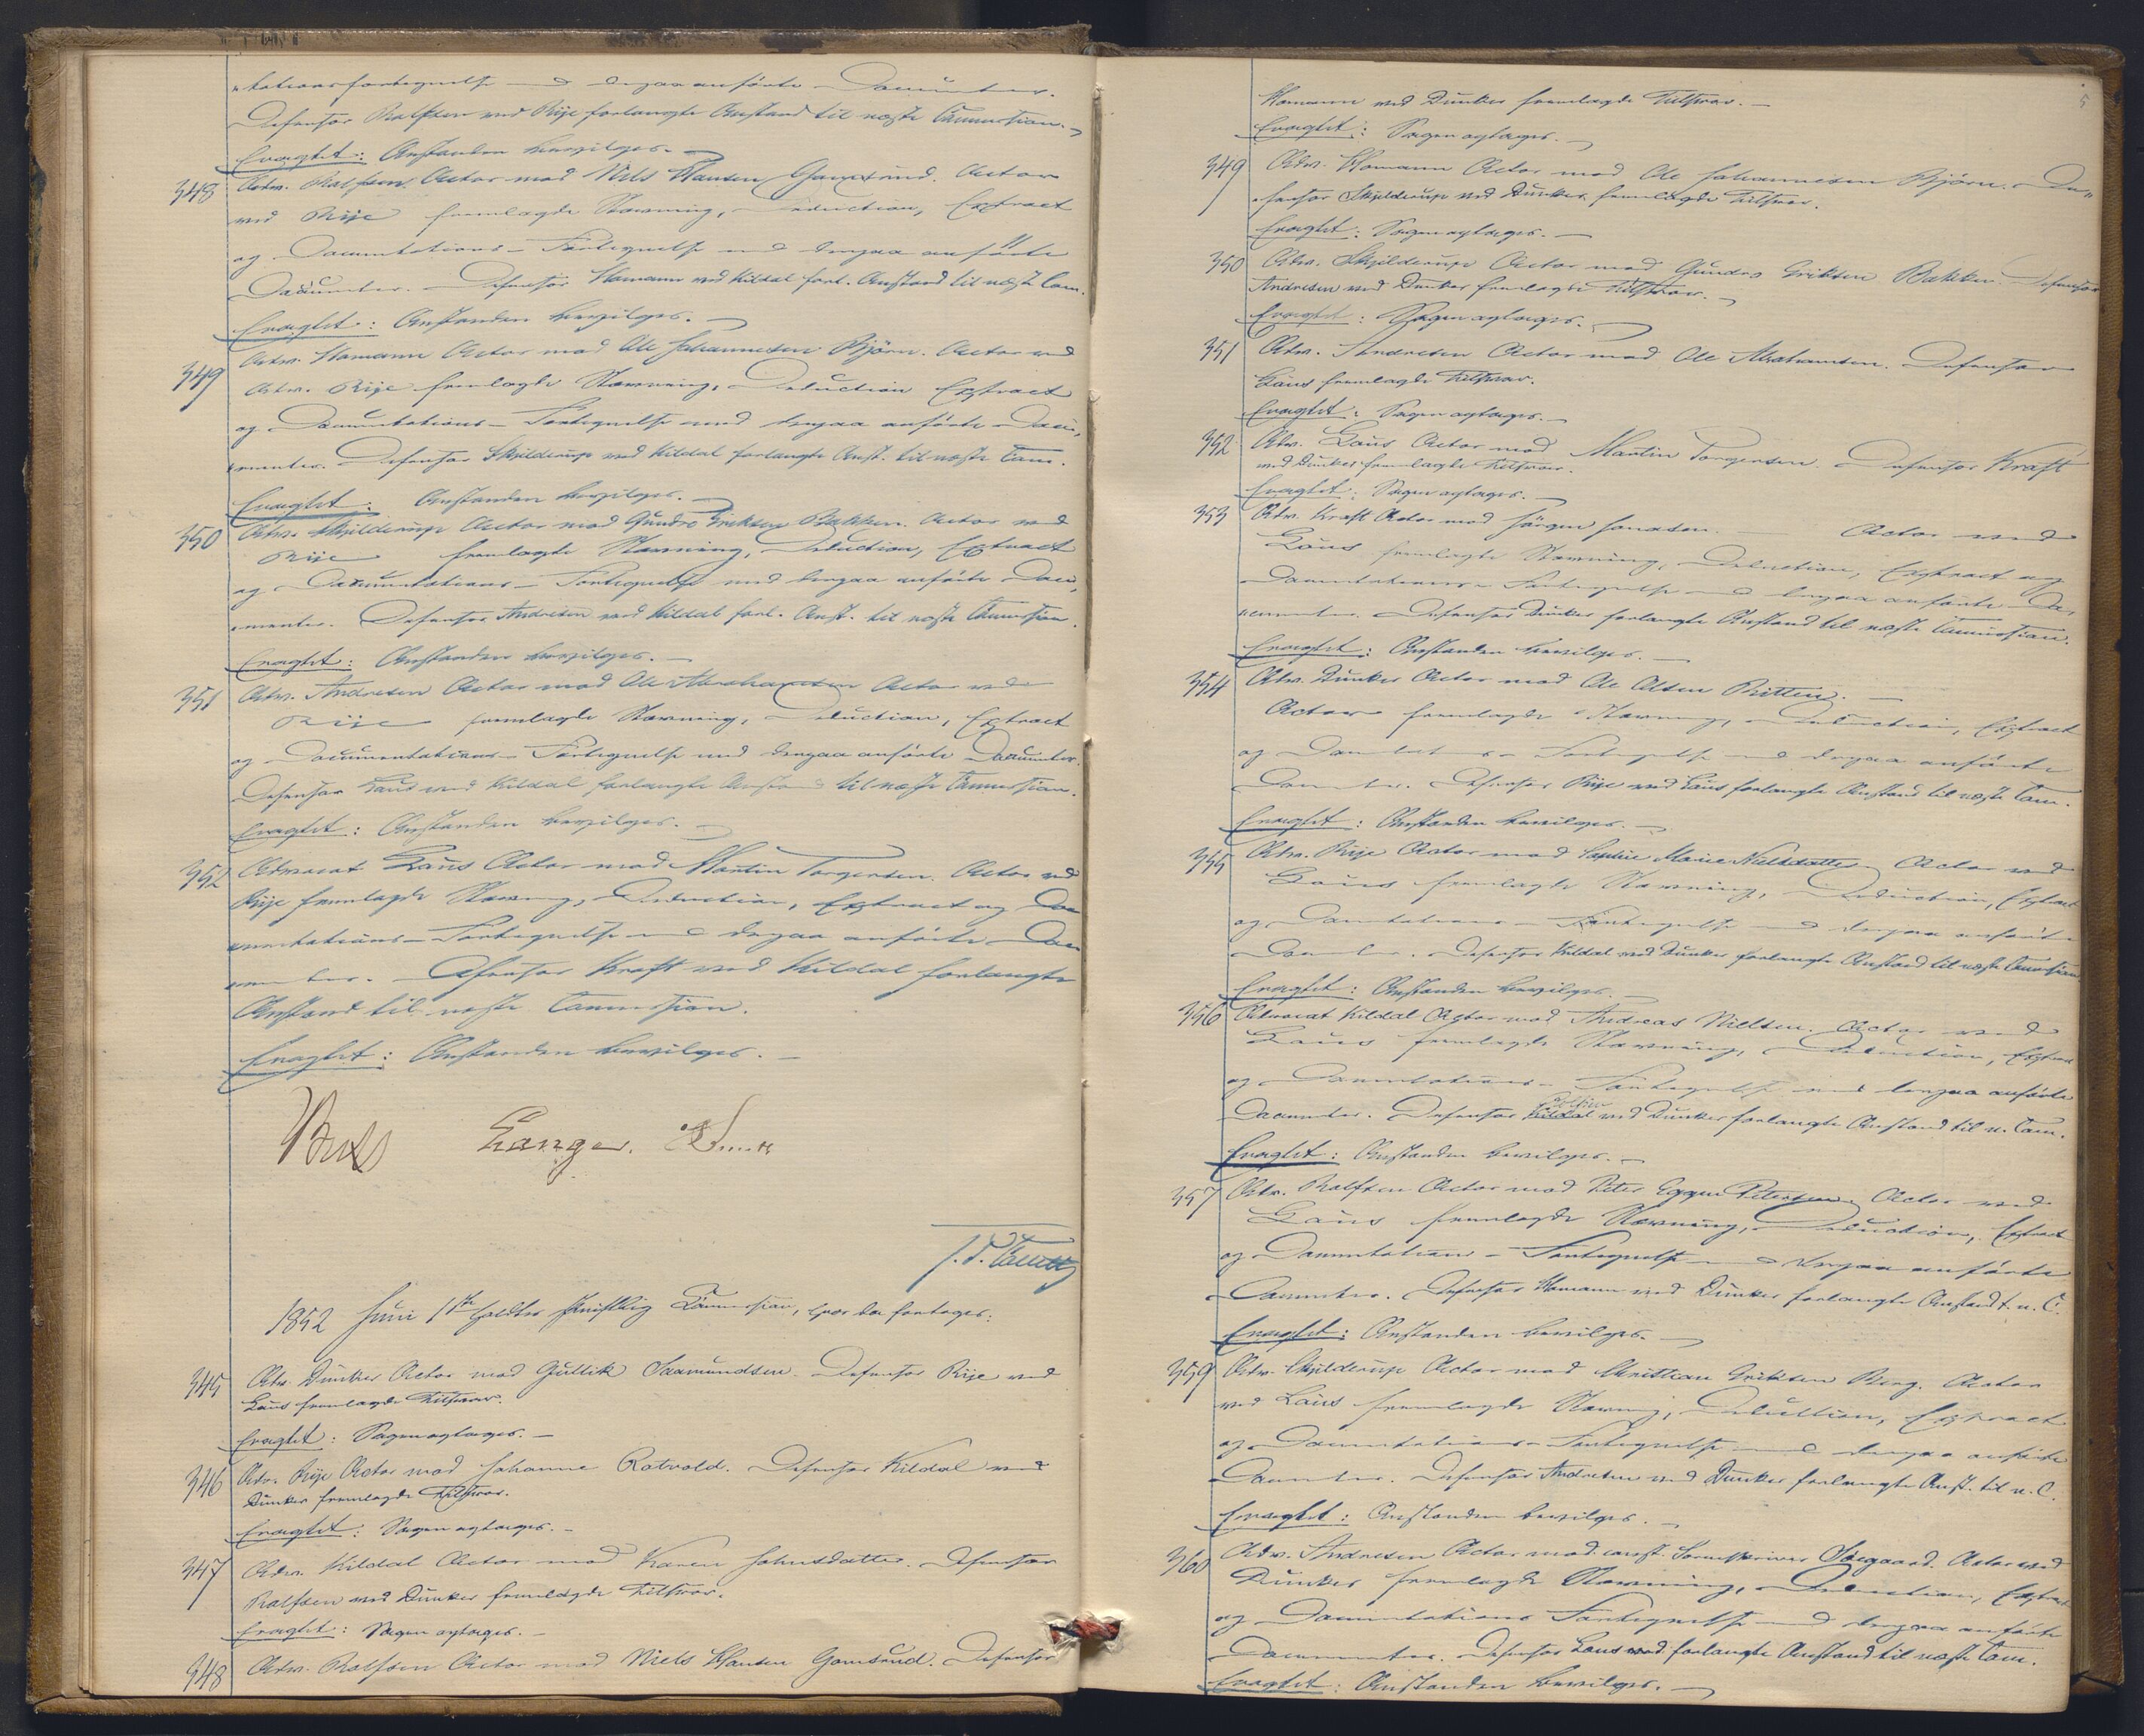 "tationsfortegnelse med derpaa anførte Documenter.
Defensor Rolfsen ved Rije forlangte Anstand til næste Commission.
Eragtet: Anstanden bevilges.
348 Adv. Rolfsen Actor mod Niels Hansen Gamsrud. Actor
ved Rije fremlagde Stævning, Deduction, Extract
og Documentations-Fortegnelse med derpaa anførte
Documenter. Defensor Homann ved Kildal forl. Anstand til næste Com.
Eragtet: Anstanden bevilges.
349 Adv. Homann Actor mod Ole Johannesen Bjørn. Actor ved
Adv. Rije fremlagde Stævning, Deduction Extract
og Documentations-Fortegnelse med derpaa anførte Docu-
"menter. Defensor Skjilderup ved Kildal forlangte Anst. til næste Com.
Eragtet: Anstanden bevilges.
350 Adv. Skjilderup Actor mod Gundro Eriksen Bakken. Actor ved
Rije fremlagde Stævning, Deduction, Extract
og Documentations-Fortegnelse med derpaa anførte Docu-
"menter. Defensor Andresen ved Kildal forl. Anst. til næste Commission.
Eragtet: Anstanden bevilges.
351 Adv. Andresen Actor mod Ole Abrahamsen Actor ved
Rije fremlagde Stævning, Deduction, Extract
og Documentations-Fortegnelse med derpaa anførte Documenter.
Defensor Laus ved Kildal forlangte Anstand til næste Commission.
Eragtet: Anstanden bevilges.
352 Advocat Laus Actor mod Martin Torgersen. Actor ved
Rije fremlagde Stævning, Deduction, Extract og Doc
umentations-Fortegnelse med derpaa anførte Doc
umenter. Defensor Kraft ved Kildal forlangte
Anstand til næste Commission.
Eragtet: Anstanden bevilges.
Langer.
1852 Juni 11te holdtes skriftlig Commission, hvor da foretoges:
345 Adv. Dunker Actor mod Gullik Saamundsen. Defensor Rije ved
Laus fremlagde Tilsvar.
Eragtet: Sagen optages.
346 Adv. Rije Actor mod Johanne Rotvold. Defensor Kildal ved
Dunker fremlagde Tilsvar.
Eragtet: Sagen optages.
347 Adv. Kildal Actor mod Karen Johnsdatter. Defensor
Rolfsen ved Dunker fremlagde Tilsvar.
Eragtet: Sagen optages.
348 Adv. Rolfsen Actor mod Niels Hansen Gamsrud. Defensor
5
Homann ved Dunker fremlagde Tilsvar.
Eragtet: Sagen optages.
349 Adv. Homann Actor mod Ole Johannesen Bjørn. De-
"fensor Skjilderup ved Dunker fremlagde Tilsvar.
Eragtet: Sagen optages.
350 Adv. Skjilderup Actor mod Gundro Eriksen Bakken. Defensor
Andresen ved Dunker fremlagde Tilsvar.
Eragtet: Sagen optages.
351 Adv. Andresen Actor mod Ole Abrahamsen. Defensor
Laus fremlagde Tilsvar.
Eragtet: Sagen optages.
352 Adv. Laus Actor mod Martin Torgersen. Defensor Kraft
ved Dunker fremlagde Tilsvar.
Eragtet: Sagen optages.
353 Adv. Kraft Actor mod Jørgen Jonassen. Actor ved
Laus fremlagde Stævning, Deduction, Extract og
Documentations-Fortegnelse med derpaa anførte Do-
"cumenter. Defensor Dunker forlangte Anstand til næste Commission.
Eragtet: Anstanden bevilges.
354 Adv. Dunker Actor mod Ole Olsen Britten.
Actor fremlagde Stævning, Deduction, Extract
og Documentations-Fortegnelse med derpaa anførte
Documenter. Defensor Rije ved Laus forlangte Anstand til næste Com.
Eragtet: Anstanden bevilges.
355 Adv. Rije Actor mod Sophie Marie Nielsdatter. Actor ved
Laus fremlagde Stævning, Deduction, Extract
og Documentations-Fortegnelse med derpaa anførte
Documenter. Defensor Kildal ved Dunker forlangte Anstand til næste Commission
Eragtet: Anstanden bevilges.
356 Advocat Kildal Actor mod Andreas Nielsen. Actor ved
Laus fremlagde Stævning, Deduction, Extract
og Documentations-Fortegnelse med derpaa anførte
Rolfsen
Documenter. Defensor Kildal ved Dunker forlangte Anstand til n. Com.
Eragtet: Anstanden bevilges.
357 Adv. Rolfsen Actor mod Peter Eggen Petersen. Actor ved
Laus fremlagde Stævning, Deduction, Extract
og Documentations-Fortegnelse med derpaa anførte
Documenter. Defensor Homann ved Dunker forlangte Anstand t. n. C.
Eragtet: Anstanden bevilges.
359 Adv. Skjilderup Actor mod Christian Eriksen Berg. Actor
ved Laus fremlagde Stævning, Deduction, Extract
og Documentations-Fortegnelse med derpaa anførte
Documenter. Defensor Andresen ved Dunker forlangte Anst. til n. C.
Eragtet: Anstanden bevilges.
360 Adv. Andresen Actor mod const. Sorenskriver Søegaard. Actor ved
Dunker fremlagde Stævning, Deduction, Extract
og Documentations Fortegnelse med derpaa anførte
Documenter. Defensor Laus ved forlangte Anstand til næste Com.
Eragtet: Anstanden bevilges.